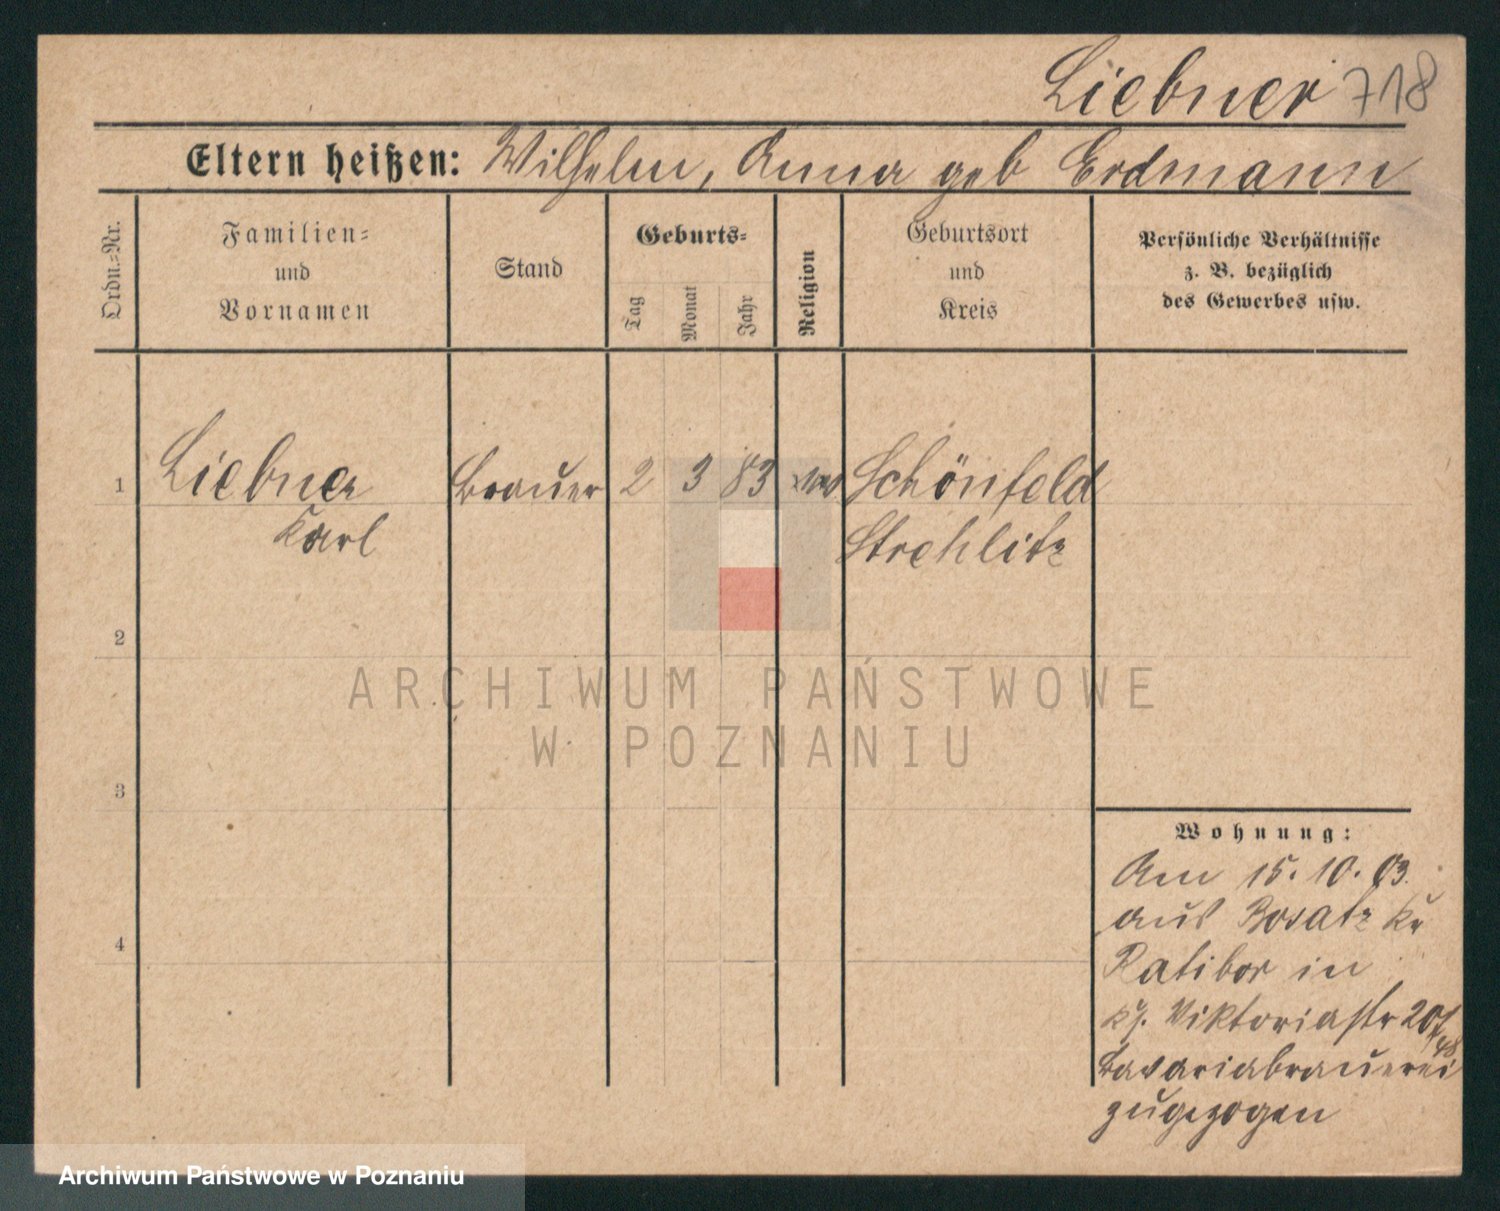 Liebner 718
Eltern heißen: Wilhelm, Anna geb Erdmann
Ordn.-Nr.
Familien-
und
Vornamen
Stand
Geburts-
Tag
Monat
Jahr
Religion
Geburtsort
und
Kreis
Persönliche Verhältnisse
z. B. bezüglich
des Gewerbes usw.
1 Liebner Brauer 2 3 83 Schönfeld
Karl Strehlitz
2
3
4
Wohnung:
Am 15. 10. 03.
aus Bosatz Kr
Ratibor in
Viktoriastr 20/
Bavariabrauerei
zugezogen
ARCHIWUM PAŃSTWOWE
W POZNANIU
Archiwum Państwowe w Poznaniu